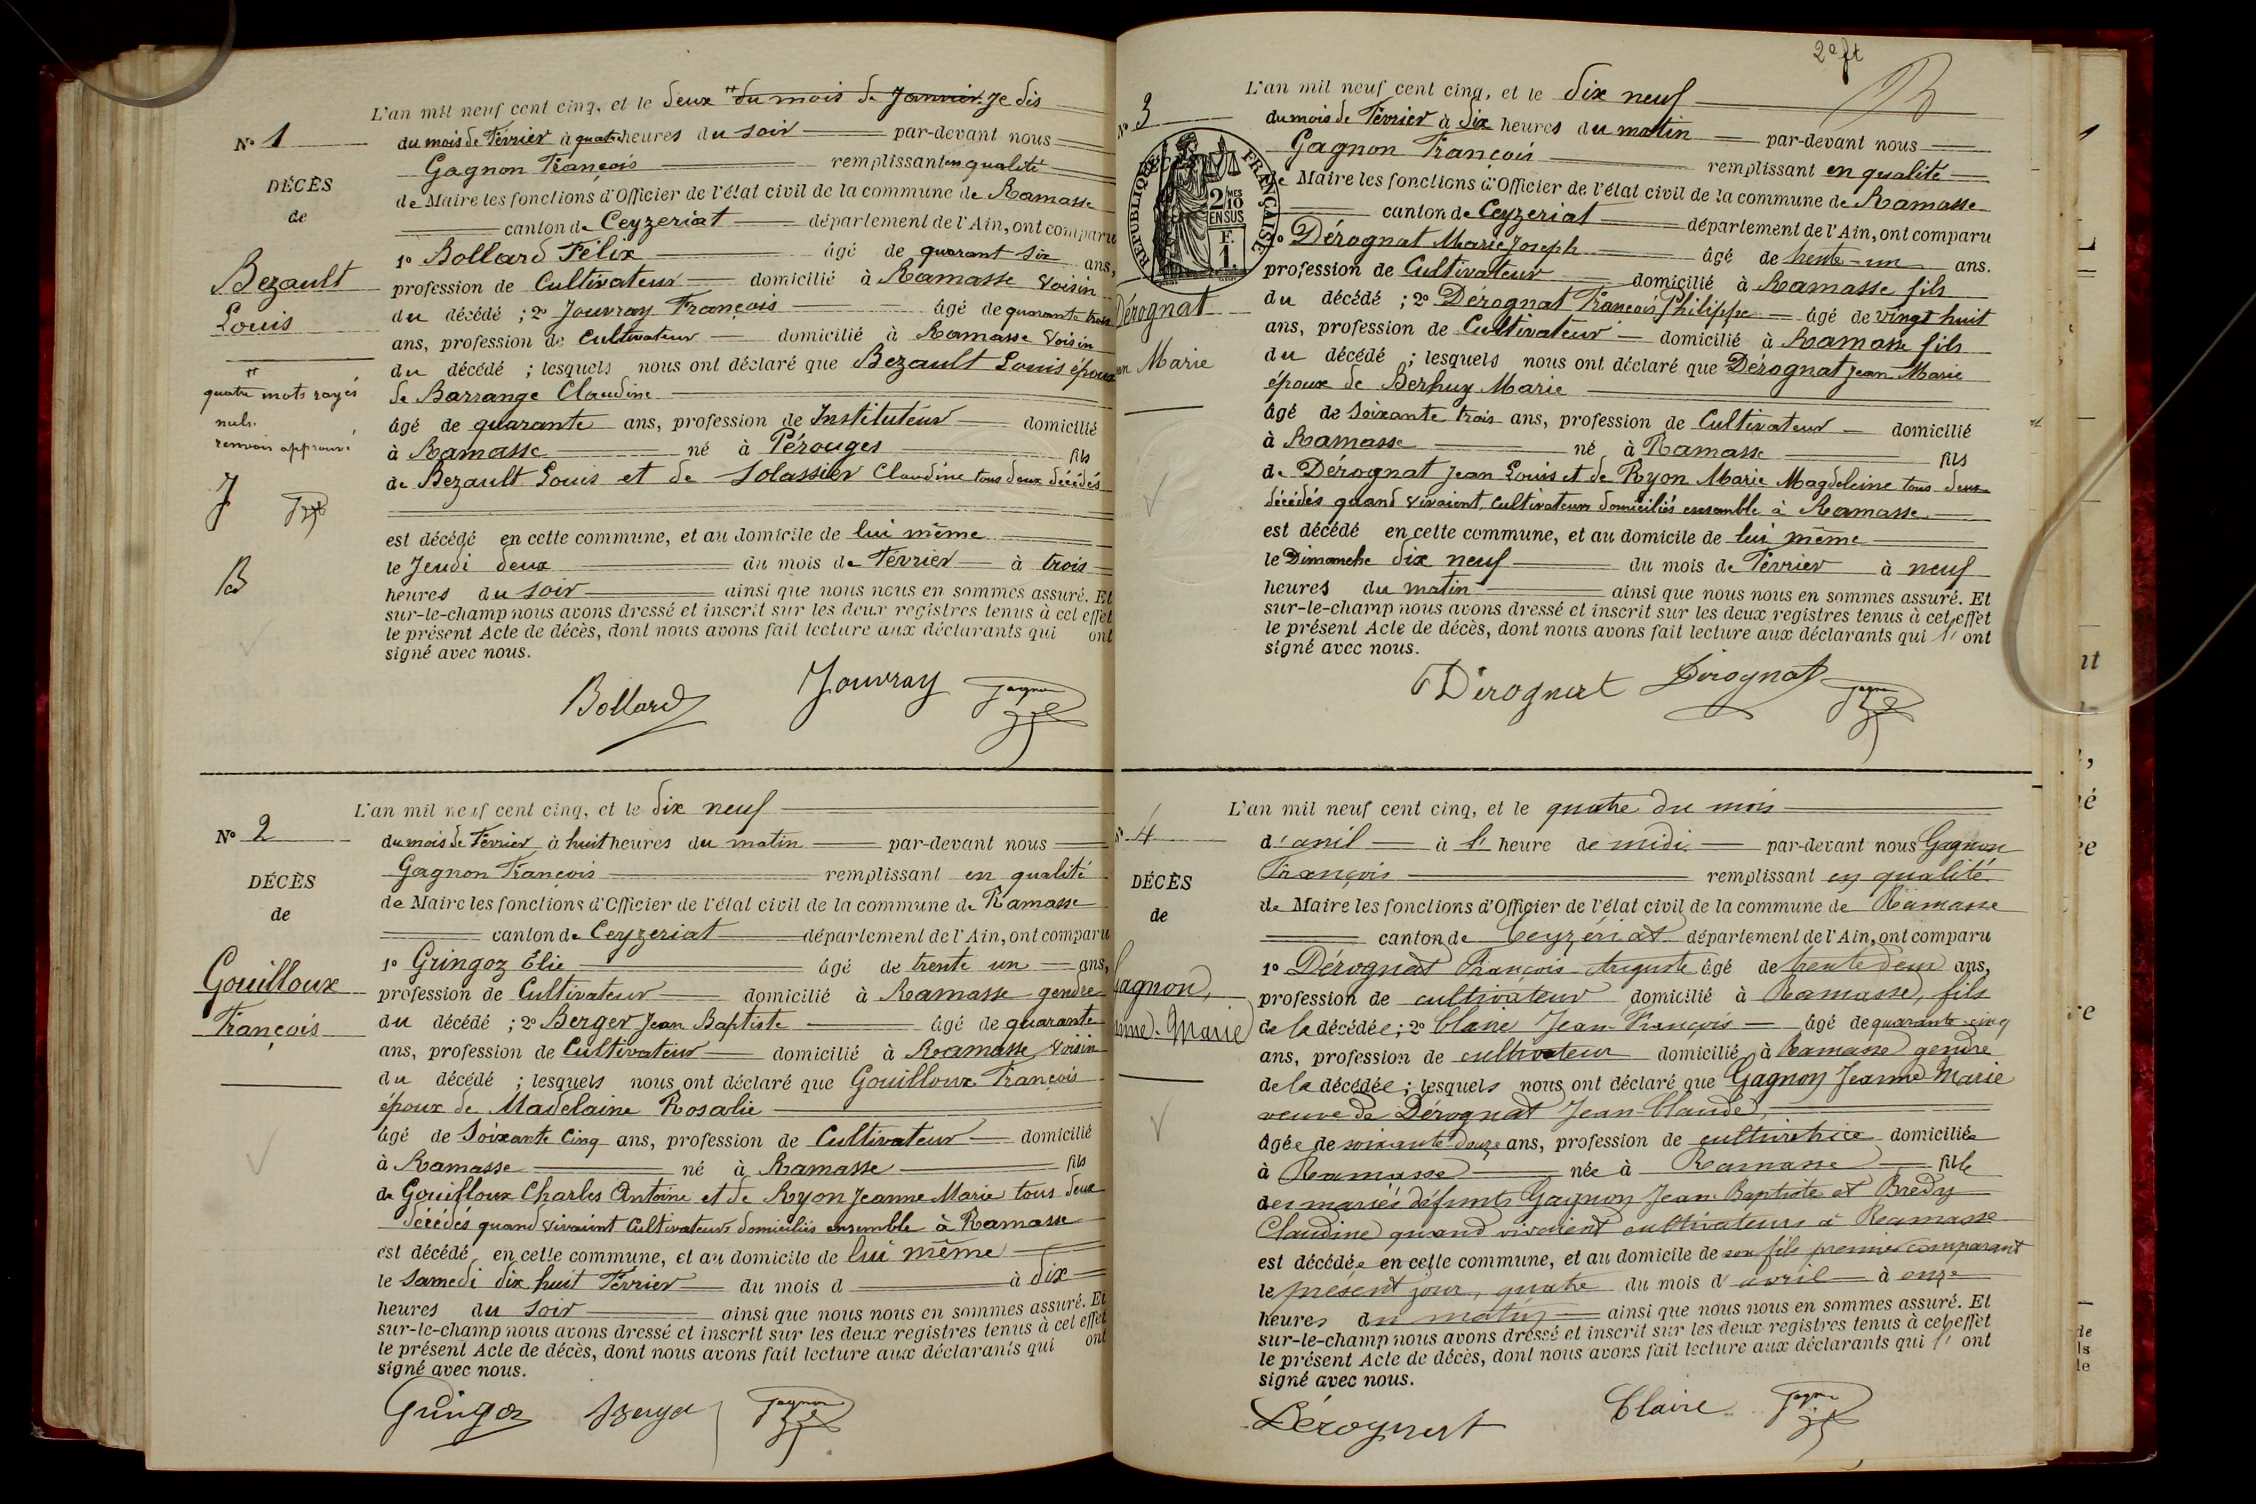 L'an mil neuf cent cinq, et le deux du mois de Janvier. Je dis
N° 1
du mois de Février à quatre heures du soir par-devant nous
Gagnon François remplissant en qualité
DÉCÈS
de Maire les fonctions d'Officier de l'état civil de la commune de Ramasse
de
canton de Ceyzeriat département de l'Ain, ont comparu
1° Bollard Félix âgé de quarant six ans,
Bezault
profession de Cultivateur domicilié à Ramasse Voisin
Louis
du décédé ; 2° Jouvray François âgé de quarante trois
ans, profession de Cultivateur domicilié à Ramasse Voisin
du décédé ; lesquels nous ont déclaré que Bezault Louis époux
quatre mots rayés
nuls.
renvoi approuvé
J
B
de Barrange Claudine
âgé de quarante ans, profession de Instituteur domicilié
à Ramasse né à Pérouges fils
de Bezault Louis et de Solassier Claudine tous deux décédés
est décédé en cette commune, et au domicile de lui même
le Jeudi deux du mois de Février à trois
heures du soir ainsi que nous nous en sommes assuré. Et
sur-le-champ nous avons dressé et inscrit sur les deux registres tenus à cet effet
le présent Acte de décès, dont nous avons fait lecture aux déclarants qui ont
signé avec nous.
Bollard Jouvray Gagnon
L'an mil neuf cent cinq, et le dix neuf
N° 2
du mois de Février à huit heures du matin par-devant nous
Gagnon François remplissant en qualité
DÉCÈS
de Maire les fonctions d'Officier de l'état civil de la commune de Ramasse
de
canton de Ceyzeriat département de l'Ain, ont comparu
1° Gringoz Élie âgé de trente un ans,
Gouilloux
profession de Cultivateur domicilié à Ramasse gendre
François
du décédé ; 2° Berger Jean Baptiste âgé de quarante
ans, profession de Cultivateur domicilié à Ramasse Voisin
du décédé ; lesquels nous ont déclaré que Gouilloux François
époux de Madelaine Rosalie
âgé de Soixante Cinq ans, profession de Cultivateur domicilié
à Ramasse né à Ramasse fils
de Gouilloux Charles Antoine et de Ryon Jeanne Marie tous deux
décédés quand vivaient Cultivateurs domiciliés ensemble à Ramasse
est décédé en cette commune, et au domicile de lui même
le Samedi dix huit Février du mois d à dix
heures du soir ainsi que nous nous en sommes assuré. Et
sur-le-champ nous avons dressé et inscrit sur les deux registres tenus à cet effet
le présent Acte de décès, dont nous avons fait lecture aux déclarants qui ont
signé avec nous.
Gringoz Berger Gagnon
2e ft
B
L'an mil neuf cent cinq, et le dix neuf
N° 3
du mois de Février à dix heures du matin par-devant nous
Gagnon François remplissant en qualité
RÉPUBLIQUE FRANÇAISE
2/10 EN SUS
F. 1.
de Maire les fonctions d'Officier de l'état civil de la commune de Ramasse
canton de Ceyzeriat département de l'Ain, ont comparu
1° Dérognat Marie Joseph âgé de trente-un ans.
profession de Cultivateur domicilié à Ramasse fils
Dérognat
du décédé ; 2° Dérognat François Philippe âgé de vingt huit
ans, profession de Cultivateur domicilié à Ramasse fils
Marie
du décédé ; lesquels nous ont déclaré que Dérognat Jean Marie
époux de Berhuy Marie
âgé de Soixante trois ans, profession de Cultivateur domicilié
à Ramasse né à Ramasse fils
de Dérognat Jean Louis et de Ryon Marie Magdeleine tous deux
décédés quand vivaient Cultivateurs domiciliés ensemble à Ramasse
est décédé en cette commune, et au domicile de lui même
le Dimanche dix neuf du mois de Février à neuf
heures du matin ainsi que nous nous en sommes assuré. Et
sur-le-champ nous avons dressé et inscrit sur les deux registres tenus à cet effet
le présent Acte de décès, dont nous avons fait lecture aux déclarants qui l' ont
signé avec nous.
Dérognat Dérognat Gagnon
L'an mil neuf cent cinq, et le quatre du mois
4
d'avril à l' heure de midi par-devant nous Gagnon
François remplissant en qualité
DÉCÈS
de Maire les fonctions d'Officier de l'état civil de la commune de Ramasse
de
canton de Ceyzériat département de l'Ain, ont comparu
1° Dérognat François Auguste âgé de trente deux ans,
Gagnon,
profession de cultivateur domicilié à Ramasse, fils
Marie
de la décédée ; 2° Claire Jean-François âgé de quarante-cinq
ans, profession de cultivateur domicilié à Ramasse gendre
de la décédée ; lesquels nous ont déclaré que Gagnon Jeanne-Marie
veuve de Dérognat Jean-Claude,
âgée de soixante-douze ans, profession de cultivatrice domiciliée
à Ramasse née à Ramasse fille
des mariés défunts Gagnon Jean-Baptiste et Bredy
Claudine quand vivaient cultivateurs à Ramasse
est décédée en cette commune, et au domicile de son fils premier comparant
le présent jour, quatre du mois d'avril à onze
heures du matin ainsi que nous nous en sommes assuré. Et
sur-le-champ nous avons dressé et inscrit sur les deux registres tenus à cet effet
le présent Acte de décès, dont nous avons fait lecture aux déclarants qui l' ont
signé avec nous.
Dérognat Claire Gagnon